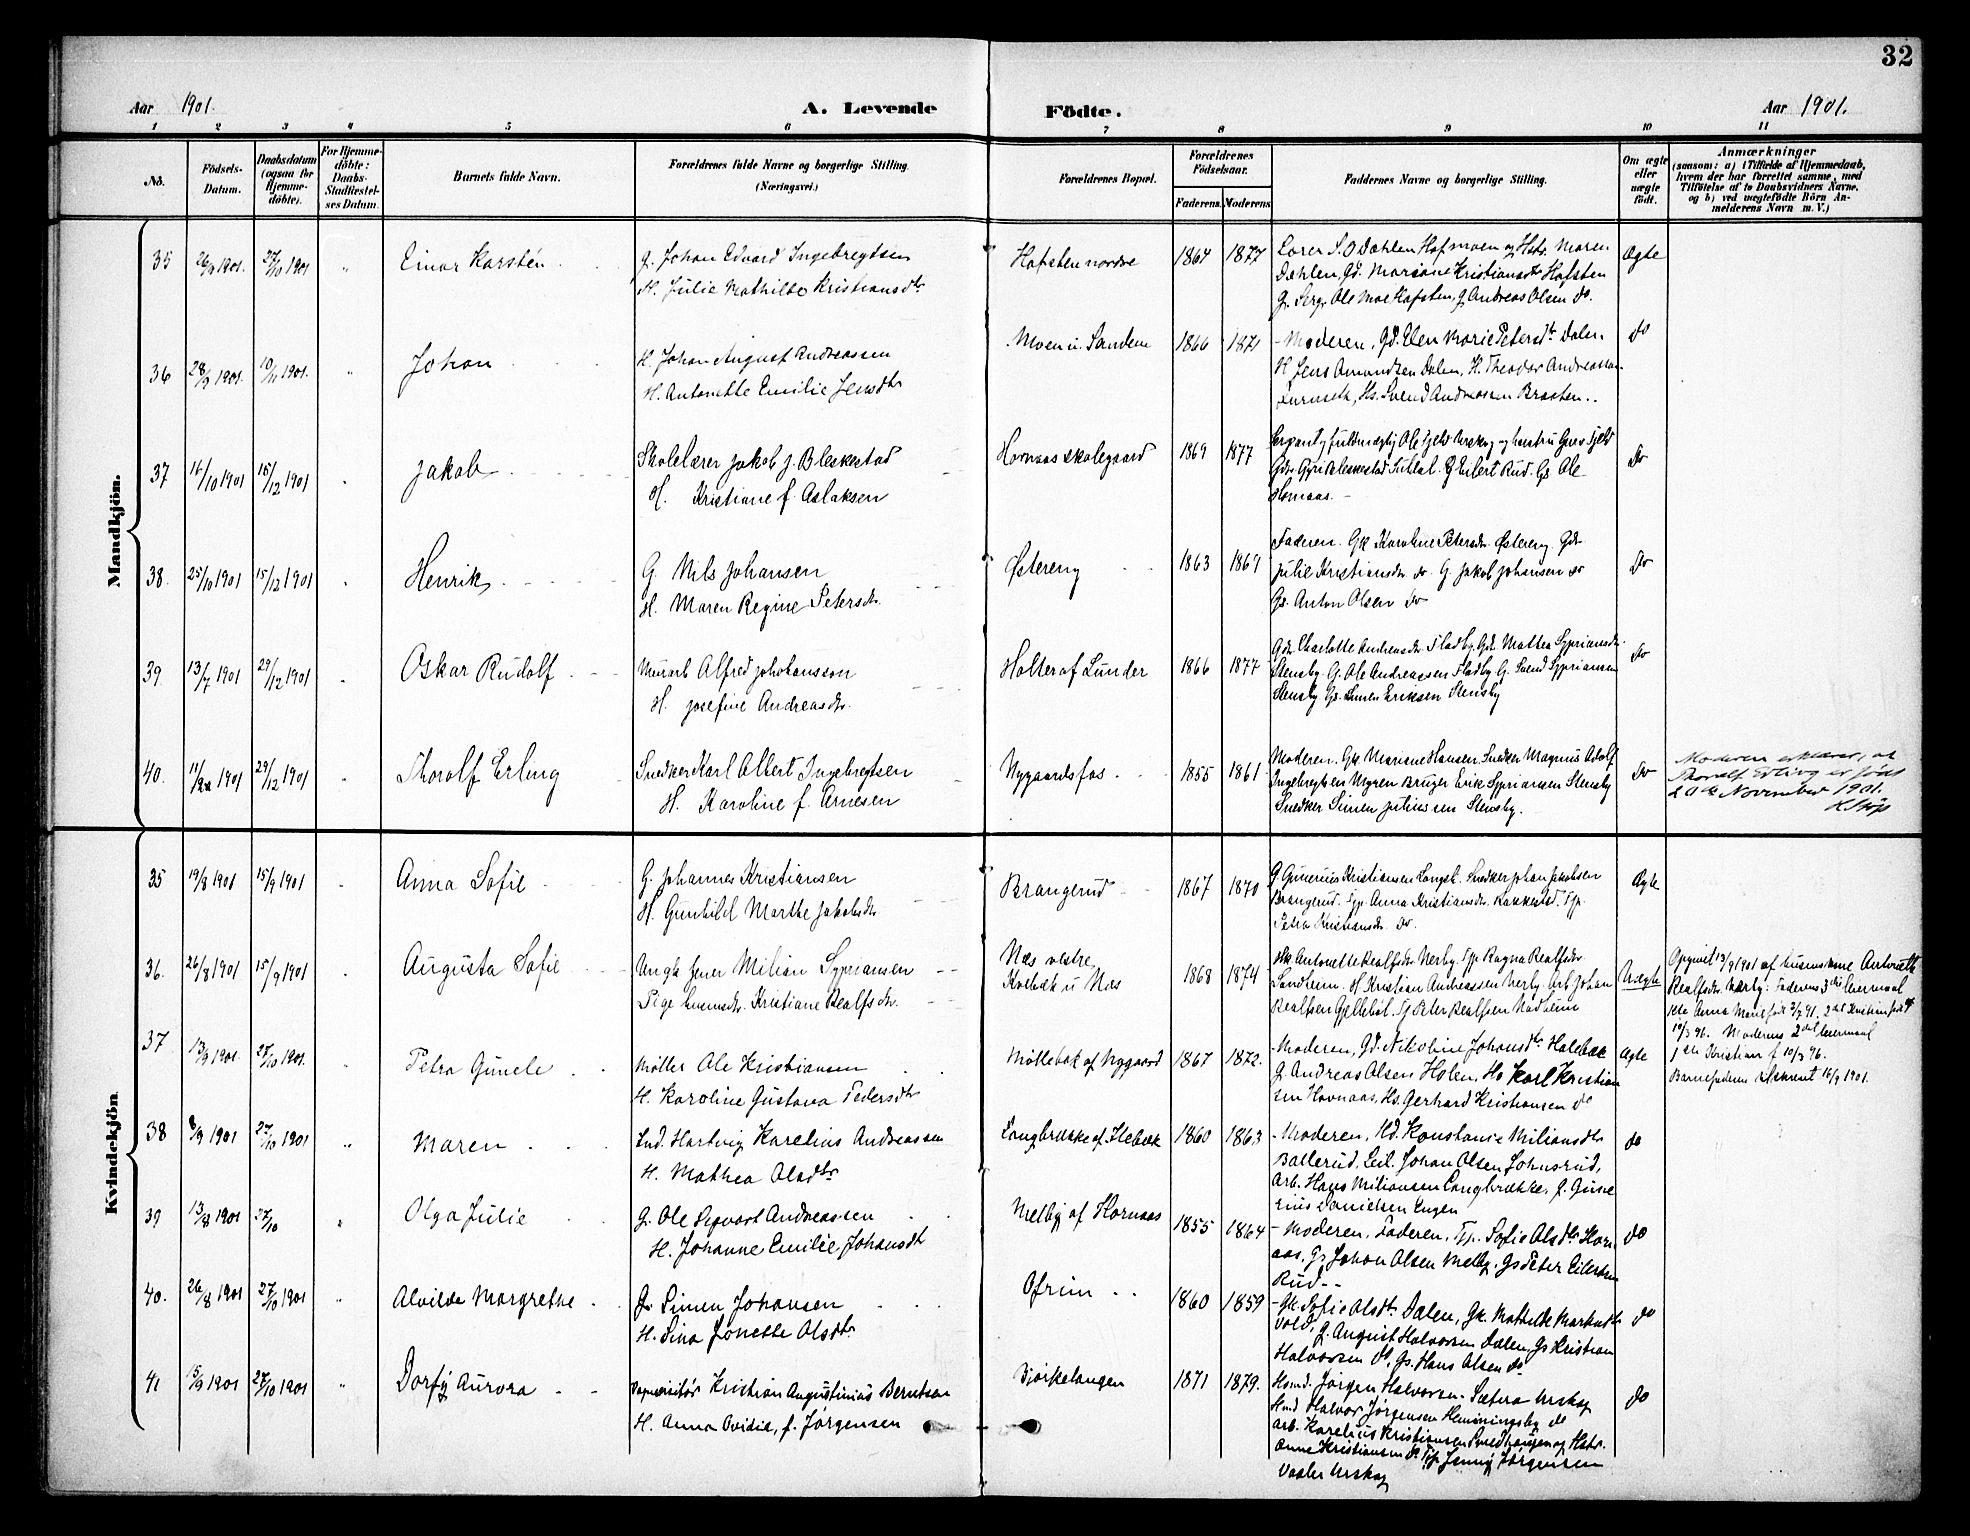 32
Aar 1901.
A. Levende Födte.
Aar 1901.
1 2 3 4 5 6 7 8 9 10 11
No.
Födsels-Datum.
Daabsdatum (ogsaa for Hjemmedöbte).
For Hjemmedöbte: Daabs-Stadfæstelses Datum.
Barnets fulde Navn.
Forældrenes fulde Navne og borgerlige Stilling. (Næringsvei.)
Forældrenes Bopæl.
Forældrenes Födselsaar.
Faderens. Moderens.
Faddernes Navne og borgerlige Stilling.
Om ægte eller uægte födt.
Anmærkninger
(saasom: a) i Tilfælde af Hjemmedaab, hvem der har forrettet samme, med Tilföielse af to Daabsvidners Navne, og b) ved uægtefödte Börn Anmelderens Navn m. V.)
Mandkjön.
35 26/9 1901. 27/10 1901 " Einar Karstén
G. Johan Edvard Ingebregtsen
H. Julie Mathilde Kristiansdtr
Hafsten nordre 1864 1877
Lærer S. O Dæhlen Hafmoen og Hstr. Maren
Dæhlen, Gd. Mariane Kristiansdtr Hafsten
G. Serg. Ole Moe Hafsten, G. Andreas Olsen do.
Ægte
36 28/9 1901. 10/11 1901. " Johan
H. Johan August Andreassen
H. Antonette Emilie Jensdtr
Moen u. Sandem 1866 1871
- Moderen, Gd. Elen Marie Petersdtr Dalen
H Jens Amundsen Dalen, H. Theodor Andreassen
Hs. Svend Andreassen Braaten..
do
37 16/10 1901 15/12 1901 Jakob
Skolelærer Jakob J. Bleskestad
H. Kristiane f. Aslaksen
Hornaas skolegaard 1869 1877
Sergant og fuldmægtig Ole Fjeld Urskog og hustru Fjeld
Bleskestad Suldal. G Eilert Rud. Gs Ole
Hornaas. -
Do
38. 25/10 1901 15/12 1901 Henrik
G. Nils Johansen
H. Maren Regine Petersdtr.
Østereng 1863 1869
Faderen. Gk Karoline Petersdtr. Østereng. Gdr
Julie Kristiansdtr do. G. Jakob Johansen do
Gs. Anton Olsen do
Do
39. 13/7 1901 29/12 1901 Oskar Rudolf
Murarb Alfred Johohansson
H. Josefine Andreasdtr.
Holter af Lunder 1866 1877
Gdr Charlotte Andreasdtr. Fladby. Gdr. Mathea Sypriansdtr.
Stensby. G. Ole Andreassen Fladby G. Svend Sypriansen
Stensby Gs. Simen Eriksen Stensby
Do
40. 29/12 1901 Thoralf Erling
Snedker Karl Albert Ingebregtsen
H. Karoline f. Arnesen
Nygaardsfos 1855 1861
Moderen. Gk Mariane Hansen. Snedker Magnus Adolf
Ingebregtsen Myren Bruger Erik Sypriansen Stensby
Snedker Simen Juliussen Stensby.
Do
Moderen erklærer, at
Thoralf Erling er født
20de November 1901.
Kvindekjön
35 19/8 1901 15/9 1901 Anna Sofie
G. Johannes Kristiansen
H. Gunhild Marthe Jakobsdtr
Brangerud 1867 1870
G Gunerius Kristiansen Longst. Snedker Johan Jakobsen
Brangerud. Tjp. Anna Kristiansdtr. Rakkestad. Tjp.
Petra Kristiansdtr. do.
Ægte
36. 26/8 1901 15/9 1901 Augusta Sofie
Ungk. Milian Sypriansen
Pige Kristiane Realfsdtr.
Næs vestre
Kvebæk u Næs 1868 1874
Hk Antonette Realfsdtr. Nerby. Tjp Ragna Realfsdtr.
Sandheim. H Kristian Andreassen Nerby. Arb Johan
Realfsen Gjellebøl. Tj Peter Realfsen Nadheim
Uægte
Opgivet 13/9 1901 af husmskone Antonette
Realfsdtr. Nærby: Faderens 3die leiermaal
1ste Anna Marie født 3/7 91. 2det Kristian født
10/3 96. Moderens 2det leiermaal
1ste Kristian f 10/3 96.
Barnefaderen tilskrevet 16/9 1901.
37 13/9 1901. 27/10 1901. Petra Gunele
Møller Ole Kristiansen
H. Karoline Gustava Pedersdtr
Møllebæk af Nygaard 1867 1872.
- Moderen, Gd. Nikoline Johansdtr Holebæk
G. Andreas Olsen Holen, Hs Karl Kristian
sen Hovnaas, Hs. Gerhard Kristiansen do
Ægte
38 8/9 1901 27/10 1901 " Maren
Ind. Hartvig Karelius Andreassen
H. Mathea Olsdtr
Langbrække af Ilebæk 1860 1863
- Moderen, Hd. Konstanse Miliansdtr
Ballerud, Leil. Johan Olsen Johnsrud,
Arb. Hans Miliansen Langbrække, f. Gune
rius Danielsen Engen
do
39 13/8 1901 27/10 " Olga Julie
G. Ole Sigvart Andreassen
H. Johanne Emilie Johansdtr
Melby af Hornaas 1855 1864
- Moderen, Faderen, Tjp. Sofie Olsdtr Horn
aas, Gs Johan Olsen Melby. Gs Peter Eilertsen
Rud - -
do
40. 26/8 1901 27/10 1901 " Alvilde Margrethe
G. Simen Johansen
H. Lina Jonette Olsdtr.
Ofrim 1860 1859
- Gk. Sofie Olsdtr. Dalen, Gk. Mathilde Markusdtr
Vold, G. August Halvorsen Dalen, Gs Kristian
Halvorsen do, Gs. Hans Olsen do
do
41 15/9 1901 27/10 1901 " Dorfy Aurora
Kristian Augustinius Berntsen
H. Anna Ovidie, f. Jørgensen
Bjørkelangen 1871 1879.
Hsmd. Jørgen Halvorsen. Sætra Urskog
Hsmd Halvor Jørgensen Henningsby do
Arb. Karelius Kristiansen Smedhaugen og Hstr.
Anne Kristiansen do Tjp Jenny Jørgensen
Vadler Urskog
do